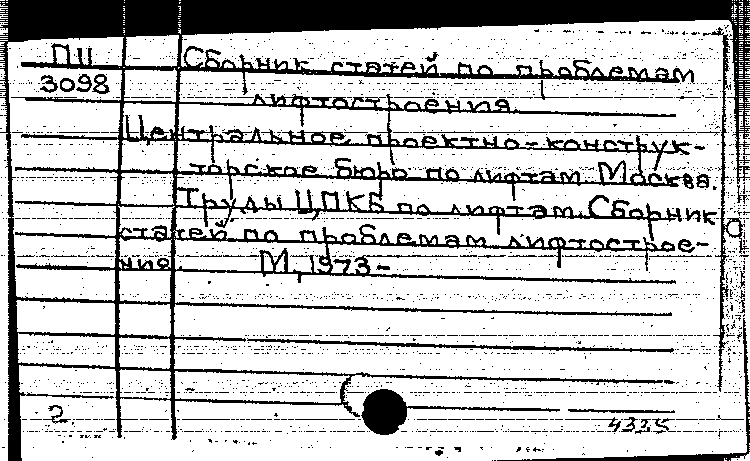 П11 Сборник статей по проблемам
3098 лифтостроения.
Центральное проектно-конструк-
торское бюро по лифтам. Москва.
Труды ЦПКБ по лифтам. Сборник
статей по проблемам лифтострое-
ния. М., 1973-
2.